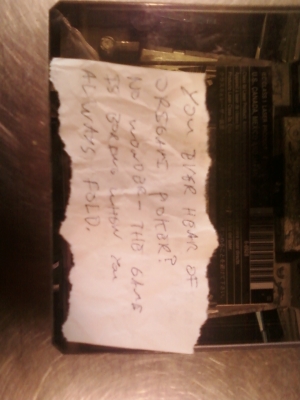 YOU EVER HEAR OF
ORIGAMI POKER?
NO WONDER - THE GAME
IS BORING WHEN YOU
ALWAYS FOLD.